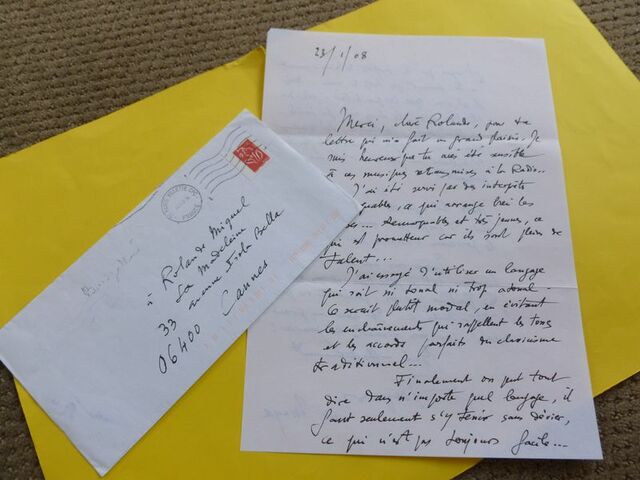 23/1/08
Merci, cher Rolande, pour ta
lettre qui m'a fait un grand plaisir. Je
suis heureux que tu aies été sensible
à ces musiques retransmises à la Radio...
J'ai été servi par des interprètes
ce qui arrange bien les
Remarquables et très jeunes, ce
qui est prometteur car ils sont pleins de
talent...
J'ai essayé d'utiliser un langage
qui soit ni tonal ni trop atonal.
Ce serait plutôt modal, en évitant
les enchaînements qui rappellent les tons
et les accords parfaits du classicisme
traditionnel...
Finalement on peut tout
dire dans n'importe quel langage, il
faut seulement s'y tenir sans dévier,
ce qui n'est pas toujours facile...
à Rolande Miquel
La Madeleine
33 avenue Isola Bella
06400 Cannes